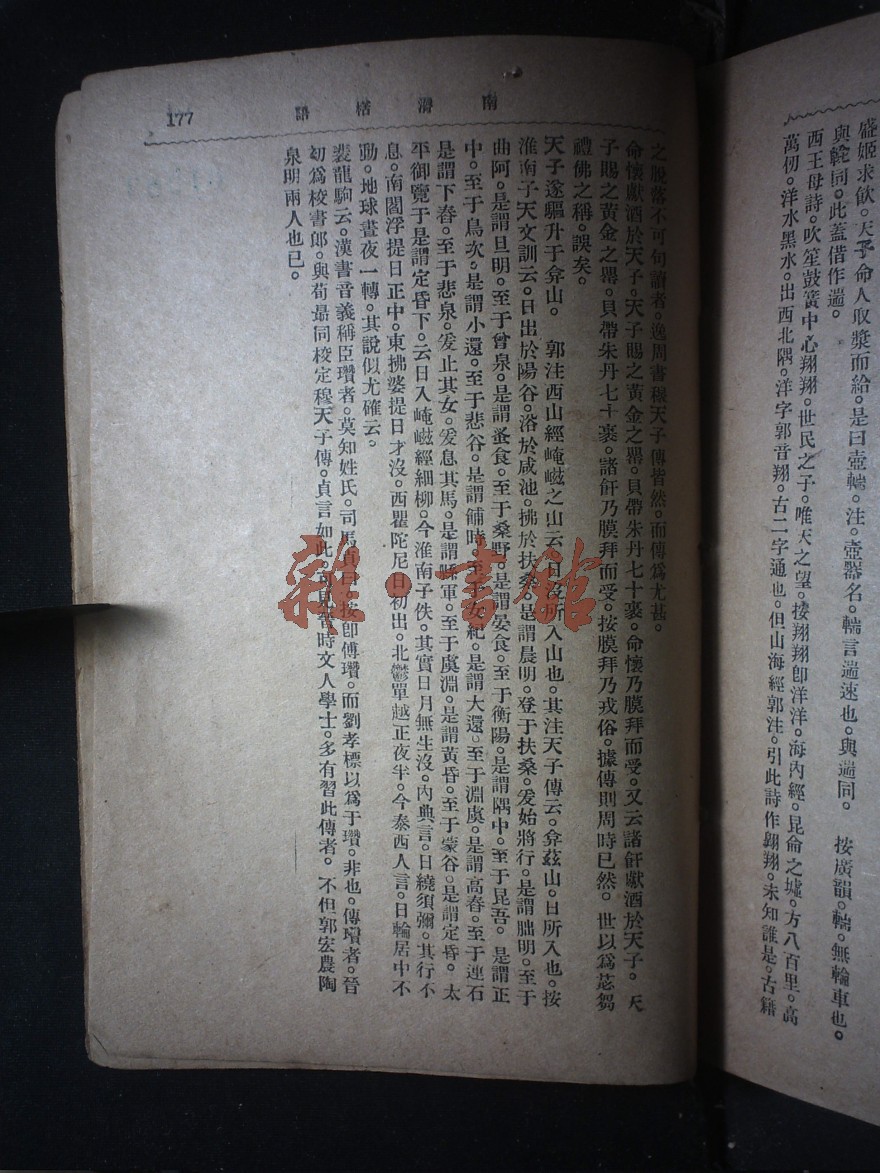 盛姬求飲。天子命人取漿而給。是曰壺輲。注。壺器名。輲言遄速也。與遄同。 按廣韻。輲。無輪車也。
與輇同。此蓋借作遄。
西王母詩。吹笙鼓簧中心翔翔。世民之子。唯天之望。按翔翔卽洋洋。海內經。昆侖之墟。方八百里。高
萬仞。洋水黑水。出西北隅。洋字郭音翔。古二字通也。但山海經郭注。引此詩作翺翔。未知誰是。古籍
南漘楛語
177
之脫落不可句讀者。逸周書穆天子傳皆然。而傳爲尤甚。
命懷獻酒於天子。天子賜之黃金之罌。貝帶朱丹七十裹。命懷乃膜拜而受。又云諸飦獻酒於天子。 天
子賜之黃金之罌。貝帶朱丹七十裹。諸飦乃膜拜而受。按膜拜乃戎俗。據傳則周時已然。 世以爲苾芻
禮佛之稱。誤矣。
天子遂驅升于弇山。 郭注西山經崦嵫之山云。日沒所入山也。其注天子傳云。弇茲山。日所入也。按
淮南子天文訓云。日出於陽谷。浴於咸池。拂於扶桑。是謂晨明。登于扶桑。爰始將行。是謂朏明。至于
曲阿。是謂旦明。至于曾泉。是謂蚤食。至于桑野。是謂晏食。至于衡陽。是謂隅中。至于昆吾。 是謂正
中。至于鳥次。是謂小還。至于悲谷。是謂餔時。至于女紀。是謂大還。至于淵虞。是謂高舂。至于連石
是謂下舂。至于悲泉。爰止其女。爰息其馬。是謂縣車。至于虞淵。是謂黃昏。至于蒙谷。是謂定昏。 太
平御覽于是謂定昏下。云日入崦嵫經細柳。今淮南子佚。其實日月無生沒。內典言。日繞須彌。其行不
息。南閻浮提日正中。東拂婆提日才沒。西瞿陀尼日初出。北鬱單越正夜半。今泰西人言。日輪居中不
動。地球晝夜一轉。其說似尤確云。
裴龍駒云。漢書音義稱臣瓚者。莫知姓氏。司馬貞曰。按卽傅瓚。而劉孝標以爲于瓚。非也。傅瓚者。晉
初爲校書郞。與荀勗同校定穆天子傳。貞言如此。可見晉時文人學士。多有習此傳者。 不但郭宏農陶
泉明兩人也已。
雜·書館